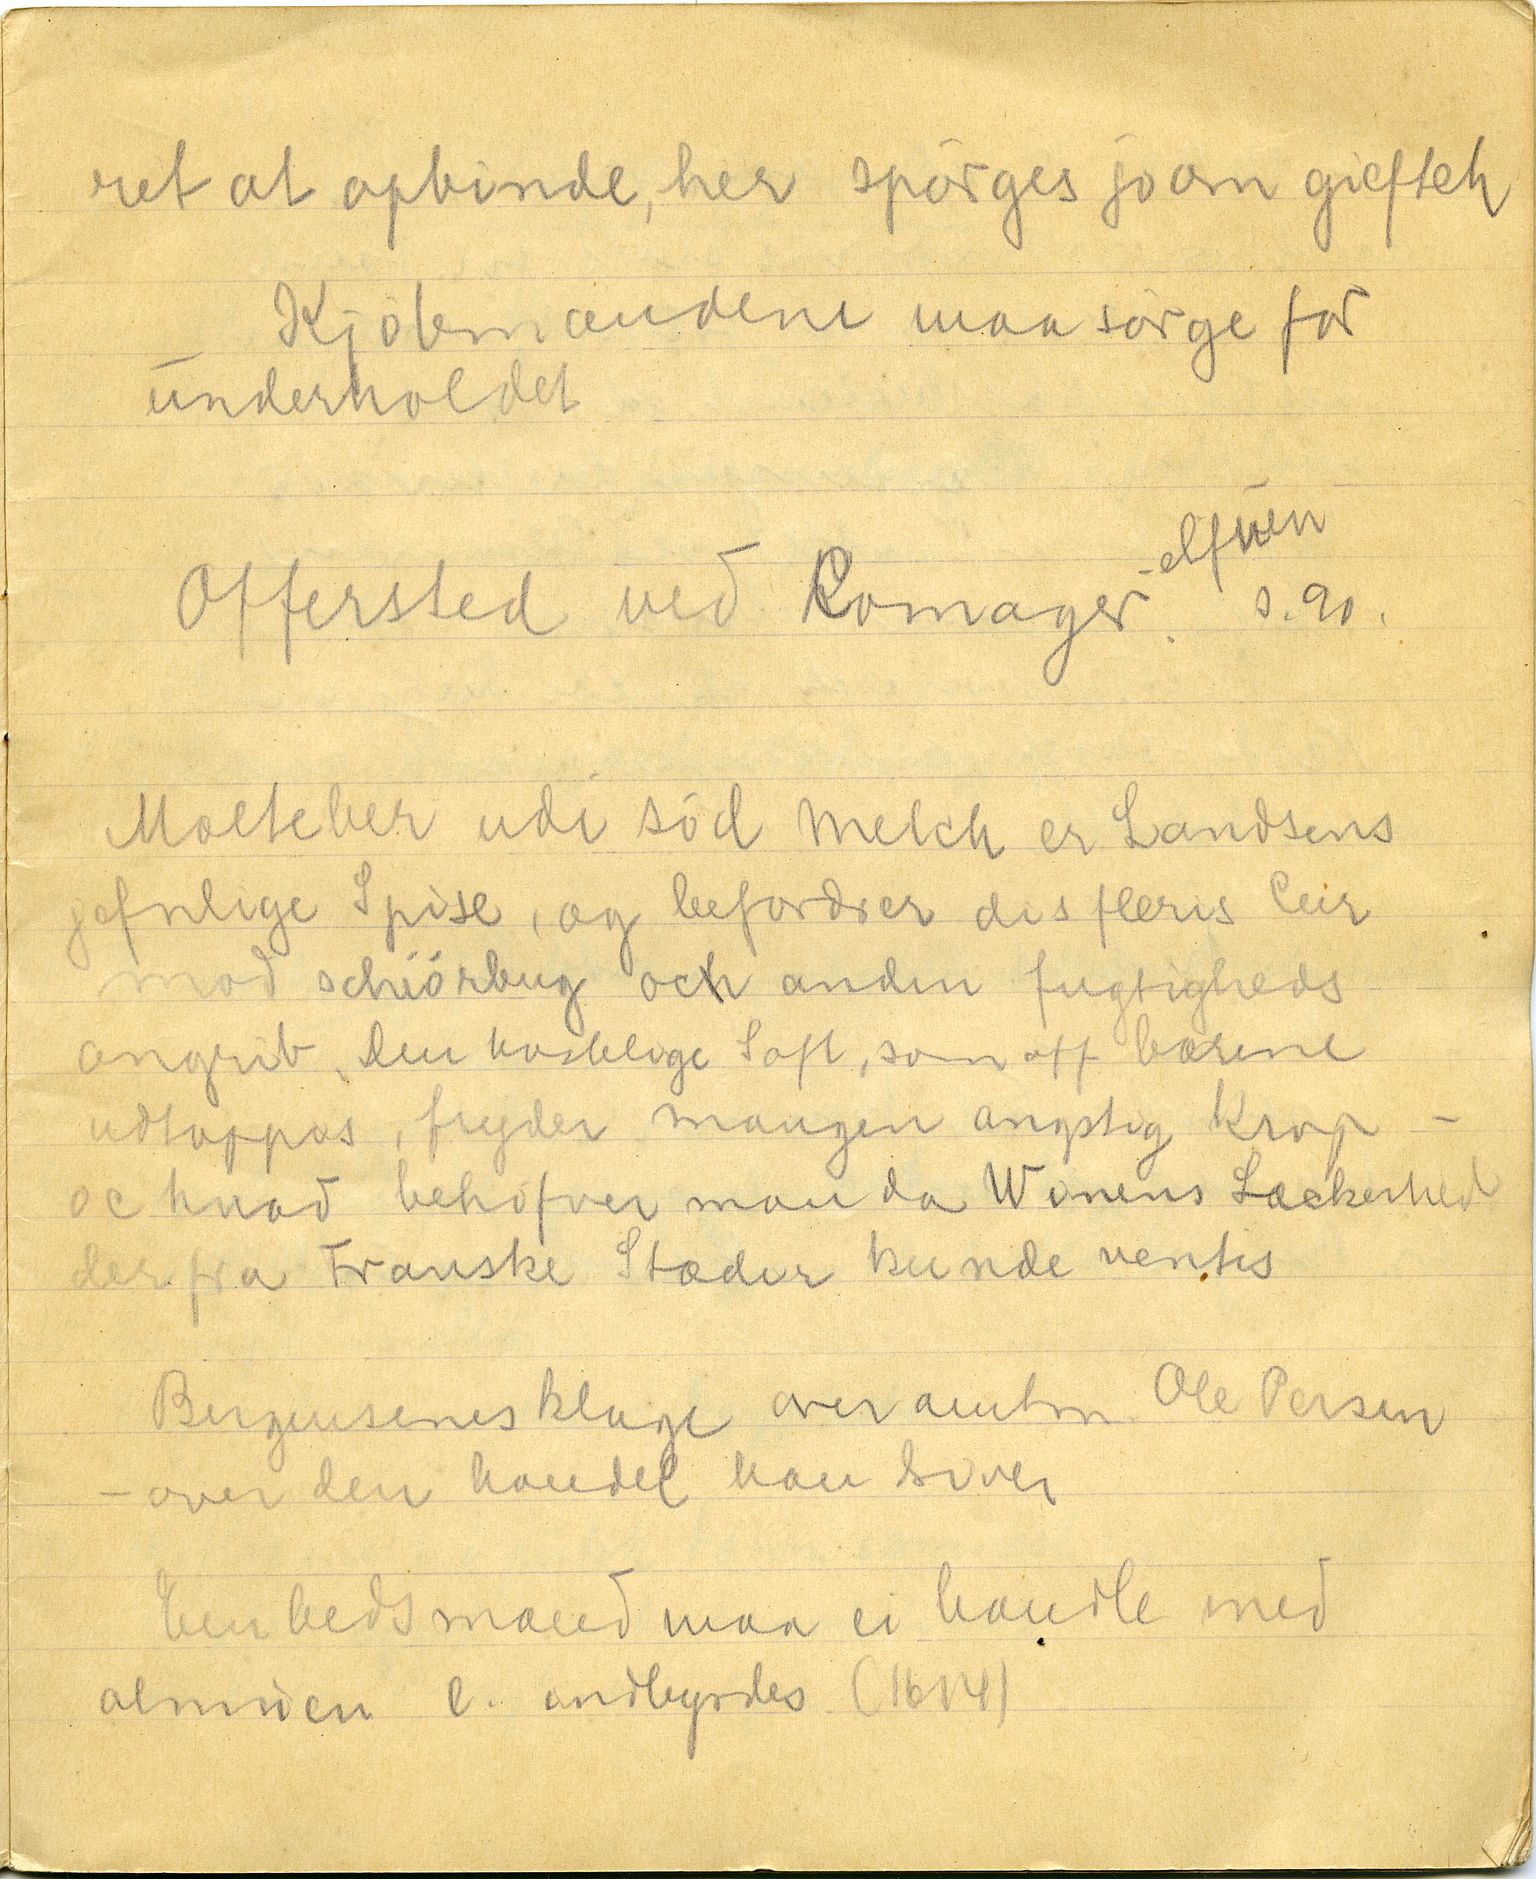 ret at opbinde, her spørges jo om gieftch
Kjøbmændene maa sørge for
underholdet
Offersted ved Komager-elfven s. 90.
Molteber udi sød Melch er Landsens
jefnlige Spise, og befordrer dis fleris Leir
mod schiørbug och anden fugtigheds
angrib, den kostelige Saft, som aff bærene
udtappes, fryder mangen angstig Krop –
oc hvad behøfver man da Winens Lackerhed
der fra Franske Stæder kunde ventis
Bergensernes klage over amtm Ole Persen
– over den handel han driver
Embedsmænd maa ei handle med
almuen l. andbyrdes (1614)